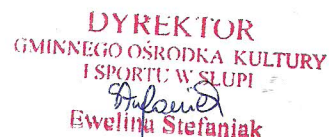 DYREKTOR
GMINNEGO OŚRODKA KULTURY
I SPORTU W SŁUPI
Ewelina Stefaniak